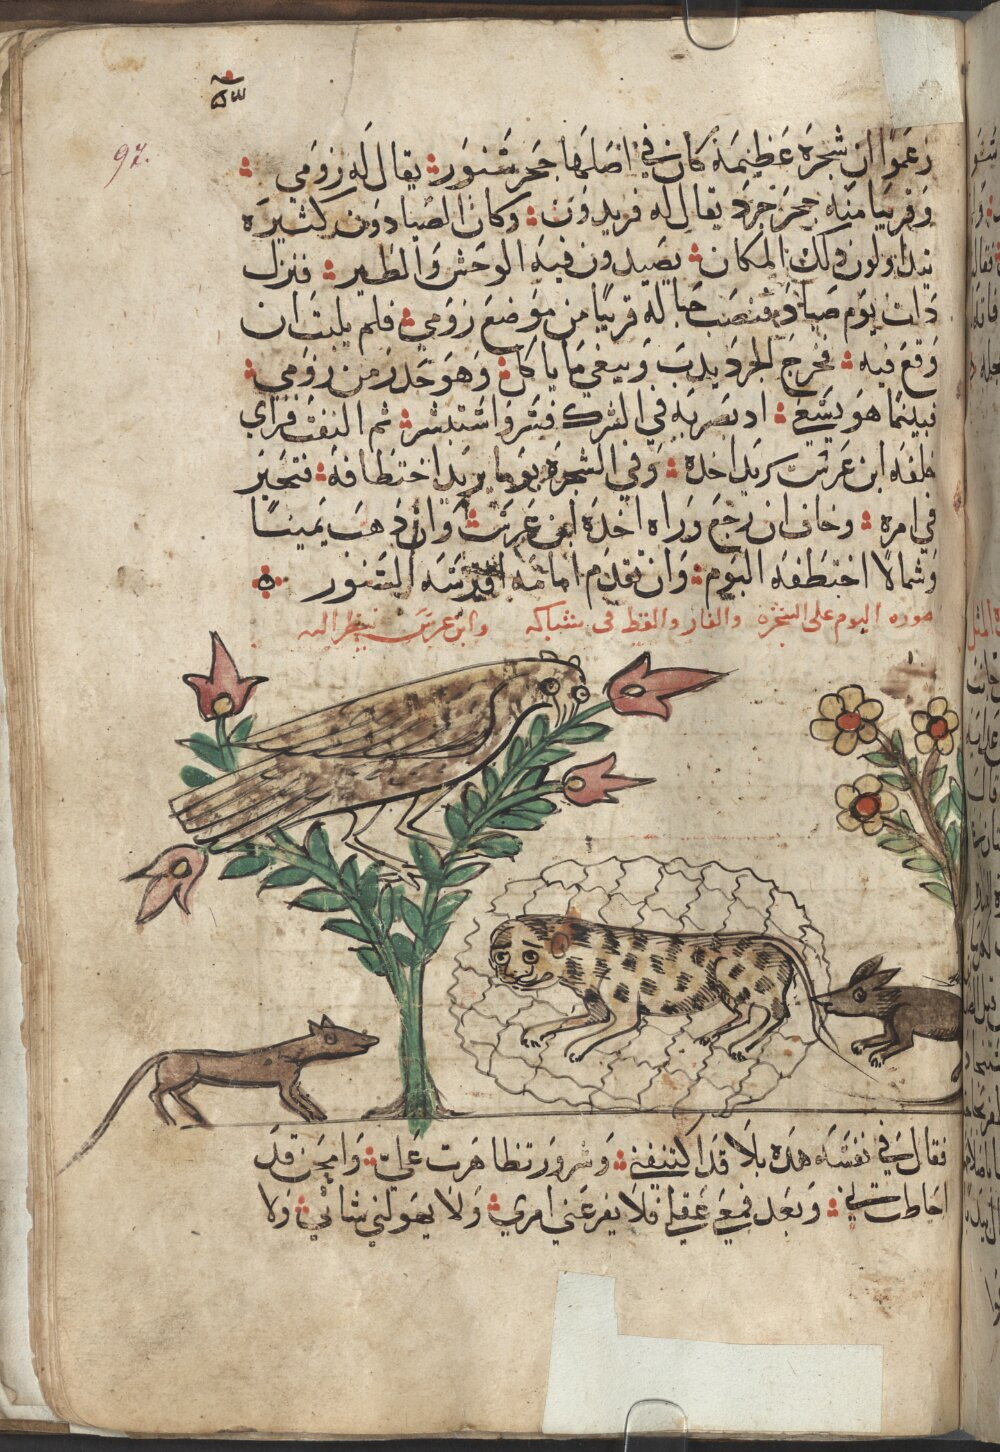 97.
زعموا ان شجرة عظيمة كان في اصلها جحر سنور يقال له رومي
وقريبا منه جحر جرد يقال له فريدون وكان الصيادون كثيره
يتداولون دلك المكان يصيدون فيه الوحش والطير فنزل
دات يوم صياد فنصب حباله قريبا من موضع رومي فلم يلبت ان
وقع فيه فخرج الجرد يدب ويبغي ما ياكل وهو حدر من رومي
فبينما هو يسعى اد بصر به في الشرك فسر واستبشر ثم التفت فراي
خلفه ابن عرس يريد اخده وفي الشجرة بوما يريد اختطافه فتحير
في امره وخاف ان رجع وراه اخده ابن عرس وان دهب يمينا
وشمالا اختطفه البوم وان تقدم امامه افترسه السنور
صوره البوم على الشجره والفار والقط في شباكه وابن عرس ينظر اليه
فقال في نفسه هده بلا قد اكتنفني وشرور تظاهرت علي ومحن قد
احاطت بي وبعد فمعي عقلي فلا يفزعني امري ولا يهولني شاني ولا